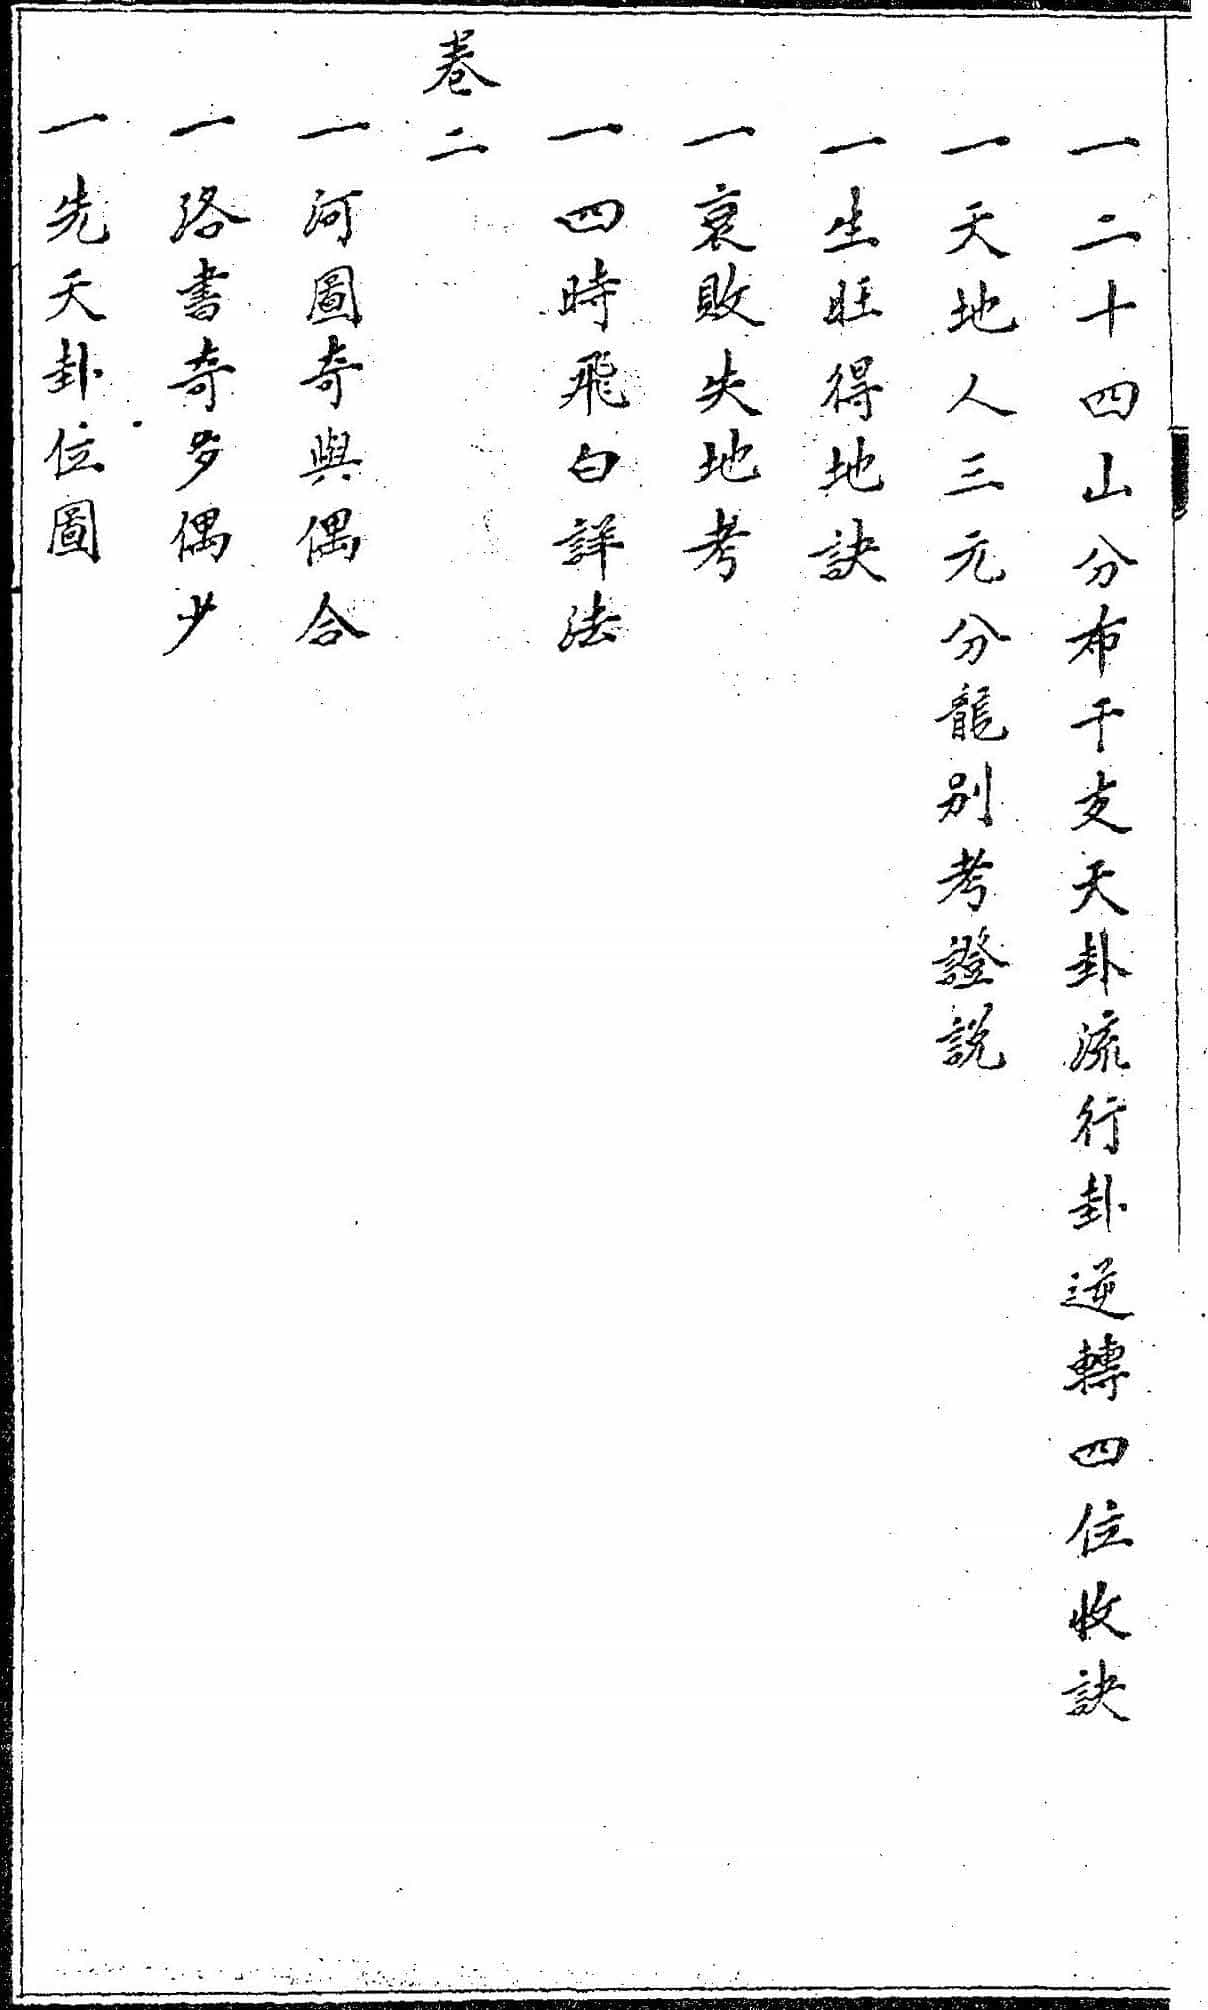 一二十四山分布干支天卦流行卦逆轉四位收訣
一天地人三元分龍別考證說
一生旺得地訣
一衰敗失地考
一四時飛白詳法
卷二
一河圖奇與偶合
一洛書奇多偶少
一先天卦位圖